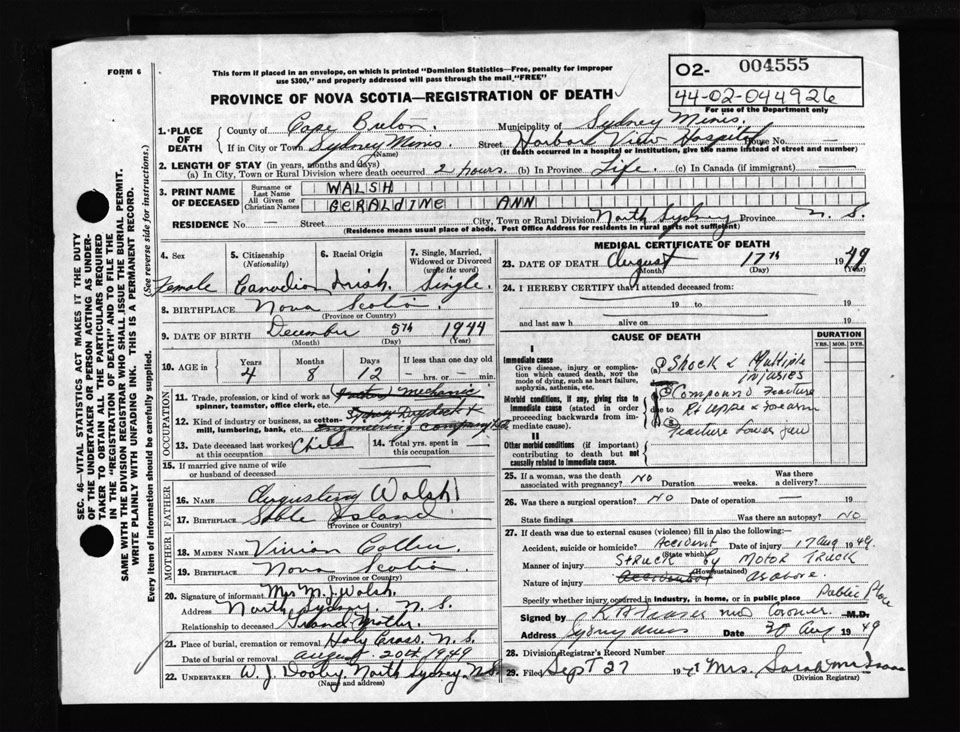 FORM 6
This form if placed in an envelope, on which is printed "Dominion Statistics—Free, penalty for improper
use $300," and properly addressed will pass through the mail "FREE"
PROVINCE OF NOVA SCOTIA—REGISTRATION OF DEATH
02- 004555
44-02-044926
For use of the Department only
1. PLACE OF DEATH
County of Cape Breton Municipality of Sydney Mines.
If in City or Town Sydney Mines. (Name) Street Harbor View Hospital House No. —
(If death occurred in a hospital or institution, give the name instead of street and number)
2. LENGTH OF STAY (in years, months and days)
(a) In City, Town or Rural Division where death occurred 2 hours. (b) In Province Life. (c) In Canada (if immigrant)
3. PRINT NAME OF DECEASED
Surname or Last Name WALSH
All Given or Christian Names GERALDINE ANN
RESIDENCE No. Street City, Town or Rural Division North Sydney Province N. S.
(Residence means usual place of abode. Post Office Address for residents in rural parts not sufficient)
SEC. 46—VITAL STATISTICS ACT MAKES IT THE DUTY
OF THE UNDERTAKER OR PERSON ACTING AS UNDER-
TAKER TO OBTAIN ALL THE PARTICULARS REQUIRED
IN THE "REGISTRATION OF DEATH" AND TO FILE THE
SAME WITH THE DIVISION REGISTRAR WHO SHALL ISSUE THE BURIAL PERMIT.
WRITE PLAINLY WITH UNFADING INK. THIS IS A PERMANENT RECORD.
Every item of information should be carefully supplied. (See reverse side for instructions.)
4. Sex
5. Citizenship (Nationality)
6. Racial Origin
7. Single, Married, Widowed or Divorced (write the word)
Female Canadian Irish Single.
8. BIRTHPLACE Nova Scotia
(Province or Country)
9. DATE OF BIRTH December 5th 1944
(Month) (Day) (Year)
10. AGE in Years Months Days If less than one day old
4 8 12 — hrs. or — min.
OCCUPATION
11. Trade, profession, or kind of work as mechanic
spinner, teamster, office clerk, etc.
12. Kind of industry or business, as cotton-
mill, lumbering, bank, etc. Engineering Company Ltd
13. Date deceased last worked at this occupation Child
14. Total yrs. spent in this occupation
15. If married give name of wife
or husband of deceased
FATHER
16. NAME Augustine Walsh
17. BIRTHPLACE Sable Island
(Province or Country)
MOTHER
18. MAIDEN NAME Vivian Collier.
19. BIRTHPLACE Nova Scotia
(Province or Country)
20. Signature of informant Mrs M. J. Walsh.
Address North Sydney, N. S.
Relationship to deceased Grand Mother.
21. Place of burial, cremation or removal Holy Cross. N. S.
Date of burial or removal August 20th 1949
22. UNDERTAKER W. J. Dooley. North Sydney. N.S.
(Name and address)
MEDICAL CERTIFICATE OF DEATH
23. DATE OF DEATH August 17th 1949
(Month) (Day) (Year)
24. I HEREBY CERTIFY that I attended deceased from:
19 to 19
and last saw h alive on 19
CAUSE OF DEATH
DURATION
YRS. MOS. DYS.
I
Immediate cause
Give disease, injury or complica-
tion which caused death, NOT the
mode of dying, such as heart failure,
asphyxia, asthenia, etc.
(a) Shock & Multiple
Injuries
Morbid conditions, if any, giving rise to
immediate cause (stated in order
proceeding backwards from im-
mediate cause).
Compound Fracture
due to Rt Upper & Forearm
Fracture Lower Jaw
II
Other morbid conditions (if important)
contributing to death but not
causally related to immediate cause.
25. If a woman, was the death associated with pregnancy? NO Duration weeks. Was there a delivery?
26. Was there a surgical operation? NO Date of operation — 19
State findings Was there an autopsy? NO
27. If death was due to external causes (violence) fill in also the following:—
Accident, suicide or homicide? ACCIDENT Date of injury 17 Aug 1949.
(State which)
Manner of injury STRUCK by MOTOR TRUCK
(How sustained)
Nature of injury Accidental as above.
Specify whether injury occurred in industry, in home, or in public place Public Place
Signed by K A Fraser MD Coroner M.D.
Address Sydney Mines Date 20 Aug 1949
28. Division Registrar's Record Number
29. Filed Sept 27 19 Mrs. Sarah
(Division Registrar)